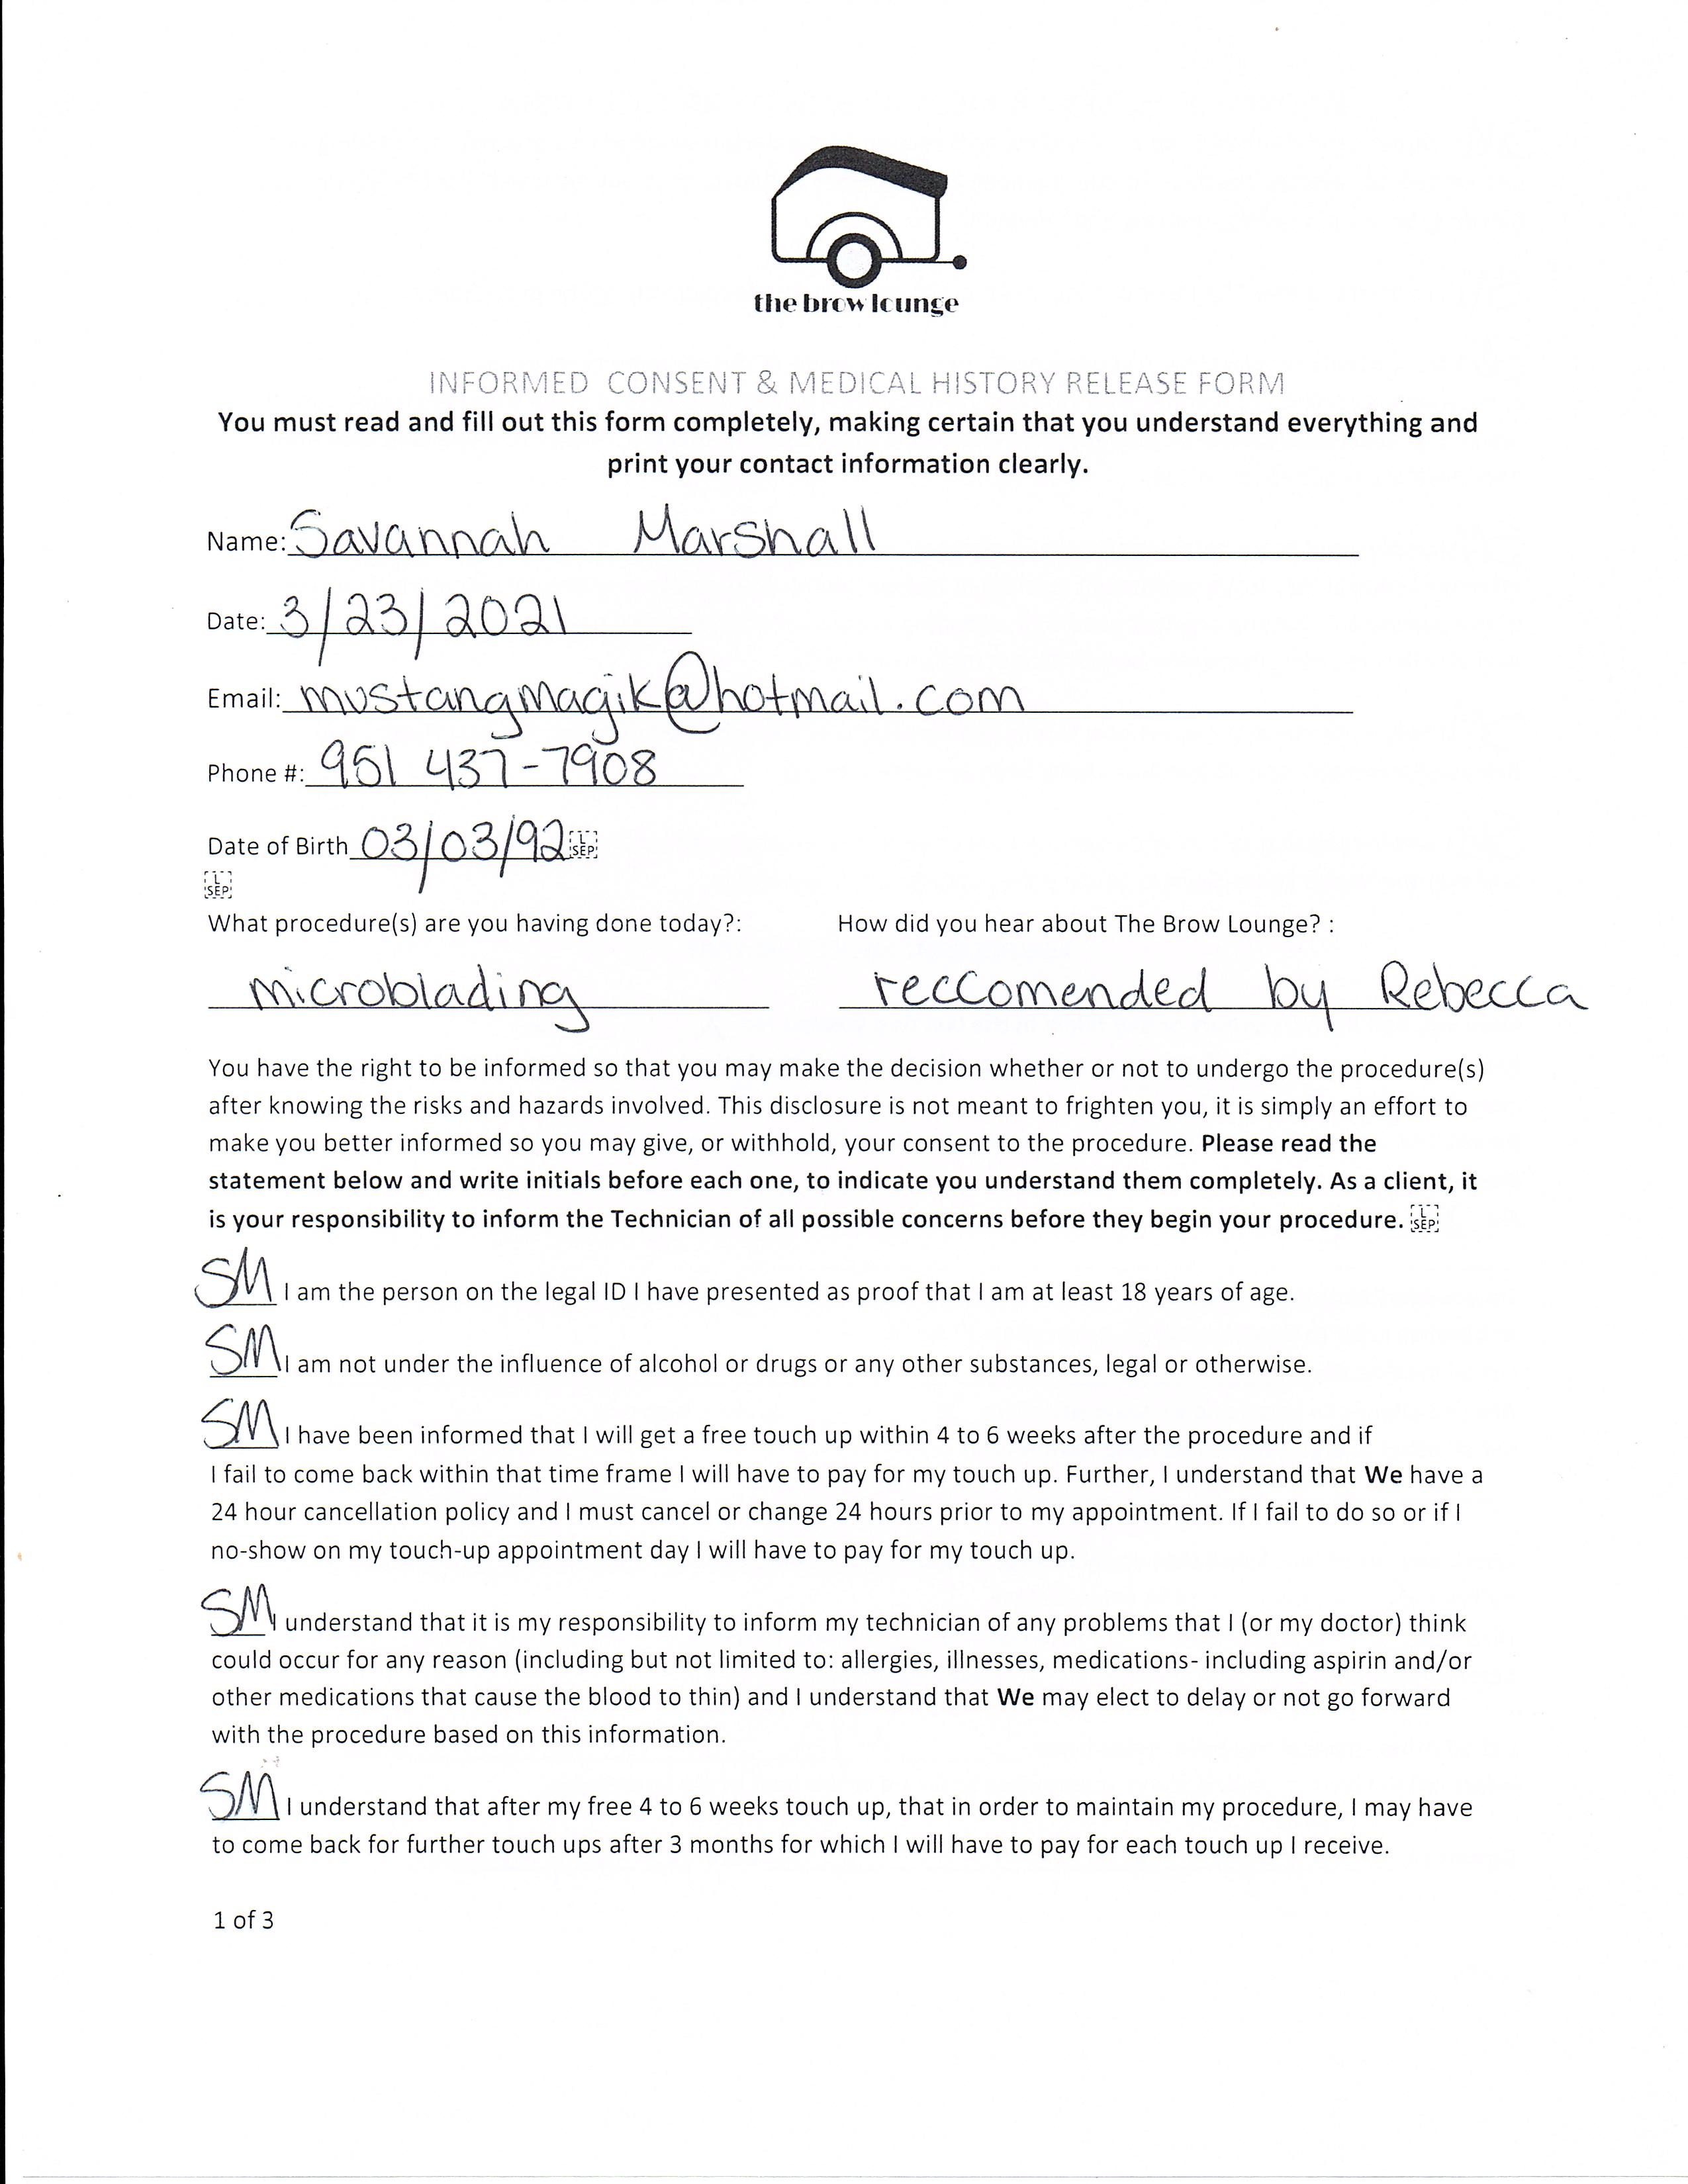 the brow lounge
INFORMED CONSENT & MEDICAL HISTORY RELEASE FORM
You must read and fill out this form completely, making certain that you understand everything and
print your contact information clearly.
Name: Savannah Marshall
Date: 3/23/2021
Email: mustangmagik@hotmail.com
Phone #: 951 437-7908
Date of Birth 03/03/92 L SEP
L SEP
What procedure(s) are you having done today?: How did you hear about The Brow Lounge? :
microblading reccomended by Rebecca
You have the right to be informed so that you may make the decision whether or not to undergo the procedure(s)
after knowing the risks and hazards involved. This disclosure is not meant to frighten you, it is simply an effort to
make you better informed so you may give, or withhold, your consent to the procedure. Please read the
statement below and write initials before each one, to indicate you understand them completely. As a client, it
is your responsibility to inform the Technician of all possible concerns before they begin your procedure. L SEP
SM I am the person on the legal ID I have presented as proof that I am at least 18 years of age.
SM I am not under the influence of alcohol or drugs or any other substances, legal or otherwise.
SM I have been informed that I will get a free touch up within 4 to 6 weeks after the procedure and if
I fail to come back within that time frame I will have to pay for my touch up. Further, I understand that We have a
24 hour cancellation policy and I must cancel or change 24 hours prior to my appointment. If I fail to do so or if I
no-show on my touch-up appointment day I will have to pay for my touch up.
SM I understand that it is my responsibility to inform my technician of any problems that I (or my doctor) think
could occur for any reason (including but not limited to: allergies, illnesses, medications- including aspirin and/or
other medications that cause the blood to thin) and I understand that We may elect to delay or not go forward
with the procedure based on this information.
SM I understand that after my free 4 to 6 weeks touch up, that in order to maintain my procedure, I may have
to come back for further touch ups after 3 months for which I will have to pay for each touch up I receive.
1 of 3